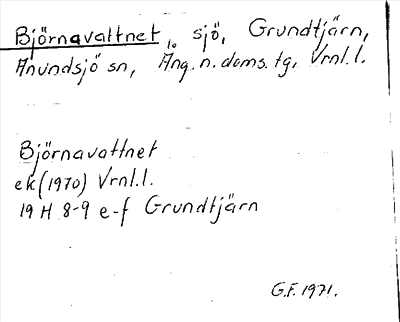 Björnavattnet, sjö, Grundtjärn,
Anundsjö sn, Ång. n. doms. tg, Vrnl.l.
Björnavattnet
ek(1970) Vrnl.l.
19 H 8-9 e-f Grundtjärn
G.F. 1971.